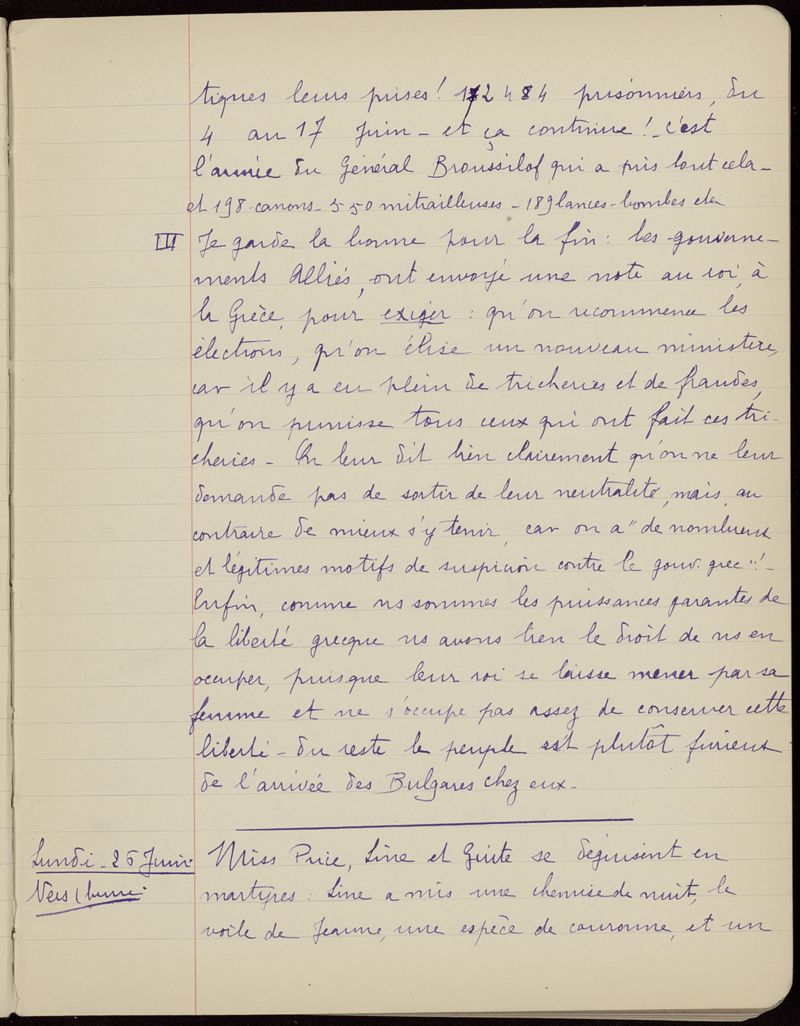 tiques leurs prises! 172484 prisonniers, du
4 au 17 Juin - et ça continue! - c'est
l'armée du Général Broussilof qui a pris tout cela -
et 198 canons - 550 mitrailleuses - 189 lances-bombes etc
III Je garde la bonne pour la fin : les gouverne-
ments Alliés, ont envoyé une note au roi, à
la Grèce, pour exiger : qu'on recommence les
élections, qu'on élise un nouveau ministère,
car il y a eu plein de tricheries et de fraudes,
qu'on punisse tous ceux qui ont fait ces tri-
cheries - On leur dit bien clairement qu'on ne leur
demande pas de sortir de leur neutralité, mais, au
contraire de mieux s'y tenir, car on a "de nombreux
et légitimes motifs de suspicion contre le gouv. grec"! -
Enfin, comme ns sommes les puissances garantes de
la liberté grecque ns avons bien le droit de ns en
occuper, puisque leur roi se laisse mener par sa
femme et ne s'occupe pas assez de conserver cette
liberté - du reste le peuple est plutôt furieux
de l'arrivée des Bulgares chez eux -
Lundi - 26 Juin
Miss Price, Line et Guite se déguisent en
martyres : Line a mis une chemise de nuit, le
voile de Jeanne, une espèce de couronne, et un